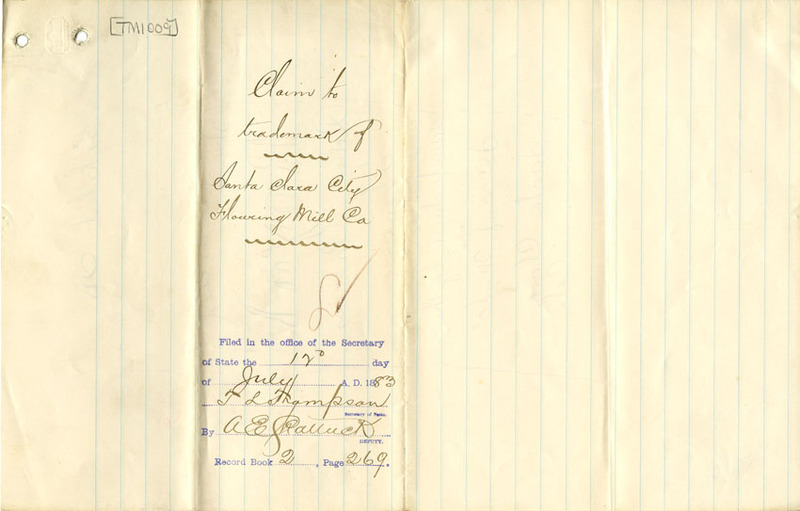 [TM1009]
Claim to
trademark of
Santa Clara City
Flouring Mill Co
Filed in the office of the Secretary
of State the 12° day
of July A. D. 1883
T L Thompson
Secretary of State.
By A E
DEPUTY.
Record Book 2, Page 269.